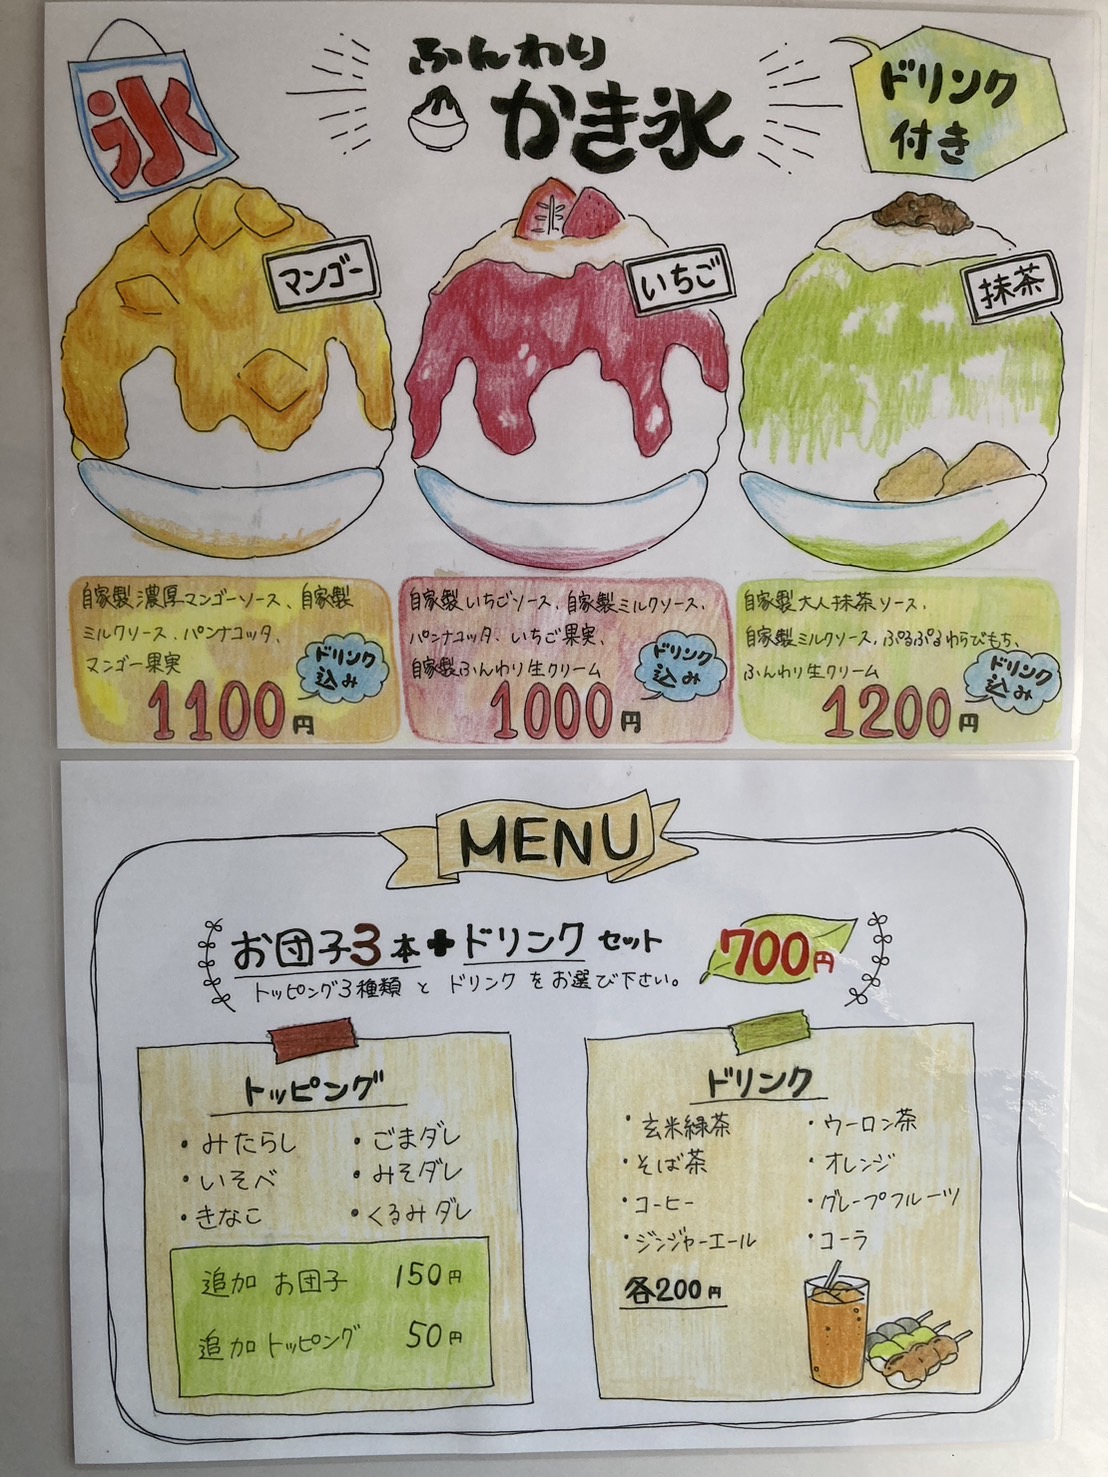 氷
ふんわり
かき氷
ドリンク
付き
マンゴー
いちご
抹茶
自家製濃厚マンゴーソース、自家製
ミルクソース、パンナコッタ、
マンゴー果実
ドリンク
込み
1100円
自家製いちごソース、自家製ミルクソース、
パンナコッタ、いちご果実、
自家製ふんわり生クリーム
ドリンク
込み
1000円
自家製大人抹茶ソース、
自家製ミルクソース、ぷるぷるわらびもち、
ふんわり生クリーム
ドリンク
込み
1200円
MENU
お団子3本+ドリンクセット
700円
トッピング3種類とドリンクをお選び下さい。
トッピング
・みたらし
・ごまダレ
・いそべ
・みそダレ
・きなこ
・くるみダレ
追加お団子 150円
追加トッピング 50円
ドリンク
・玄米緑茶
・ウーロン茶
・そば茶
・オレンジ
・コーヒー
・グレープフルーツ
・ジンジャーエール
・コーラ
各200円